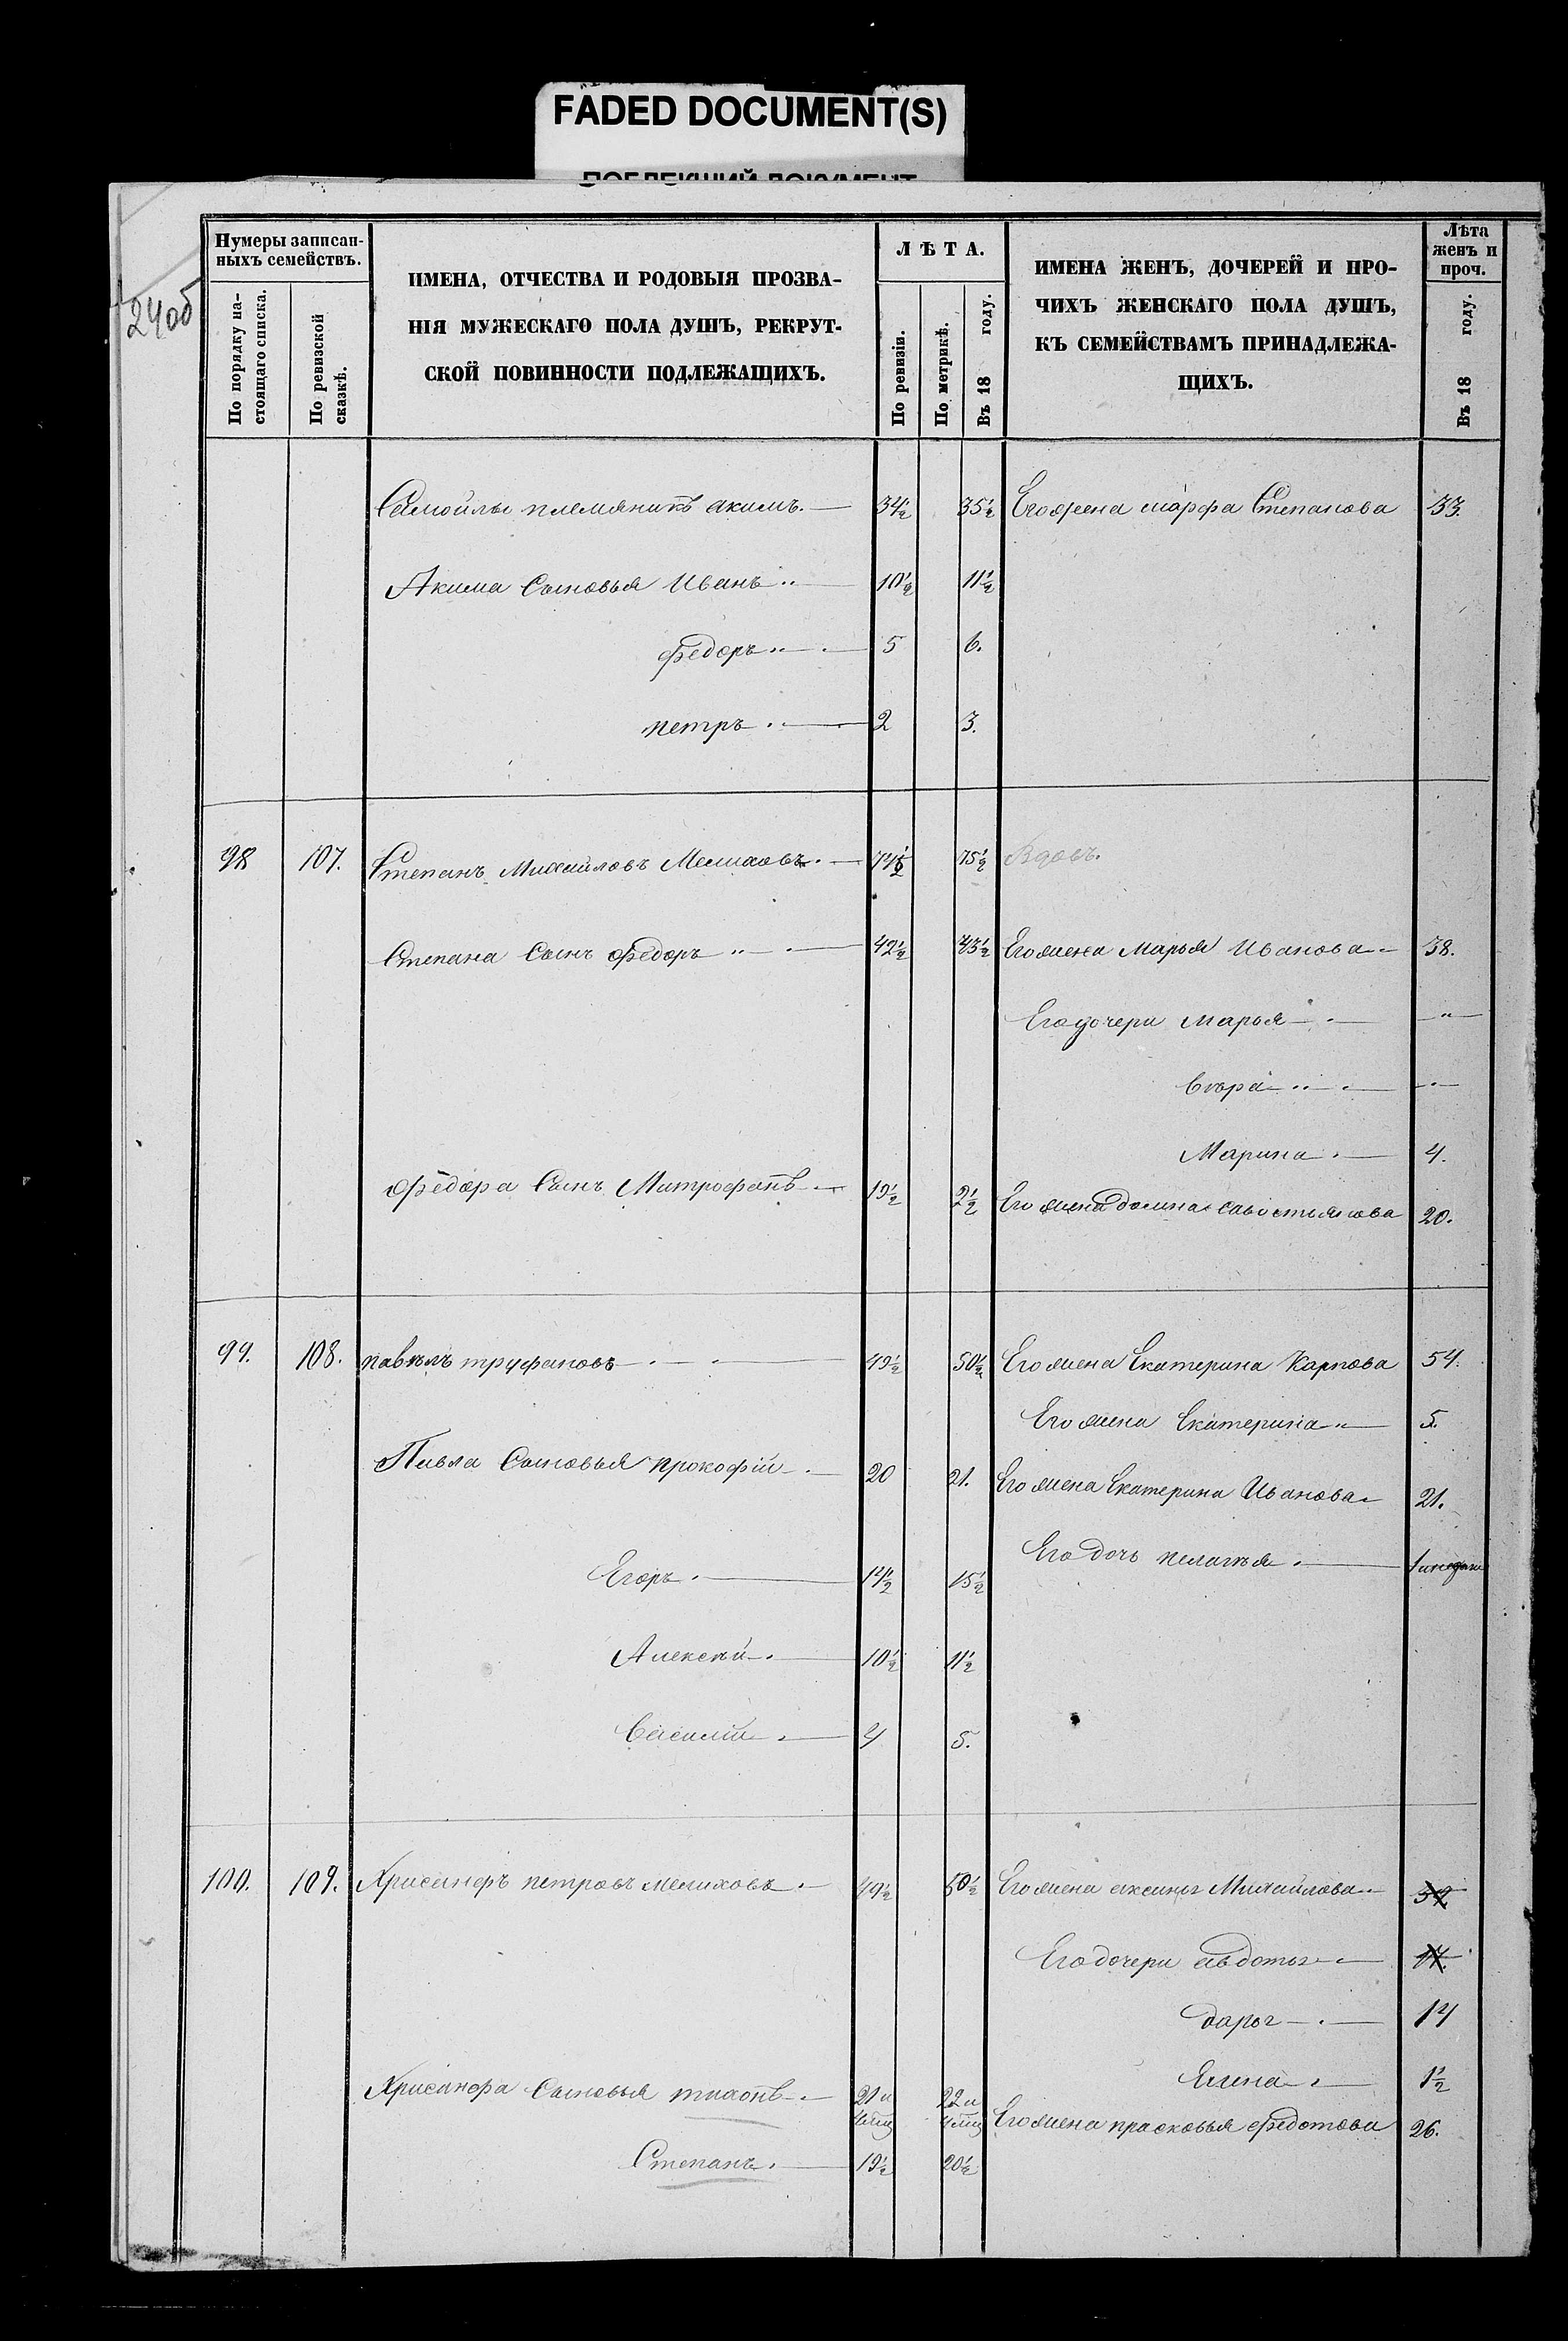 FADED DOCUMENT(S)
ПОБЛЕКШИЙ ДОКУМЕНТ
24об
Нумеры записан-
ныхъ семействъ.
По порядку на-
стоящаго списка.
По ревизской
сказкѣ.
ИМЕНА, ОТЧЕСТВА И РОДОВЫЯ ПРОЗВА-
НІЯ МУЖЕСКАГО ПОЛА ДУШЪ, РЕКРУТ-
СКОЙ ПОВИННОСТИ ПОДЛЕЖАЩИХЪ.
ЛѢТА.
По ревизіи.
По метрикѣ.
Въ 18 году.
ИМЕНА ЖЕНЪ, ДОЧЕРЕЙ И ПРО-
ЧИХЪ ЖЕНСКАГО ПОЛА ДУШЪ,
КЪ СЕМЕЙСТВАМЪ ПРИНАДЛЕЖА-
ЩИХЪ.
Лѣта
женъ и
проч.
Въ 18 году.
Самойлы племяникъ акимъ. 34½ 35½ Его жена марфа Степанова 33.
Акима Сыновья Иванъ 10½ 11½
федоръ 5 6.
петръ 2 3.
98 107. Степанъ Михайловъ Мелиховъ. 74½ 75½ Вдовъ.
Степана Сынъ федоръ 42½ 43½ Его жена Марья Иванова 38.
Его дочери Марья "
Вѣра "
Марина 4.
Федора Сынъ Митрофанъ 19½ 2½ Его жена домна савостьянова 20.
99. 108. павелъ труфановъ 49½ 50½ Его жена Екатерина Карпова 54.
Его жена Екатерина 5.
Павла Сыновья прокофій 20 21. Его жена Екатерина Иванова 21.
Его дочь пелагѣя
Егоръ. 14½ 15½
Алексѣй 10½ 11½
Василій 4 5.
100. 109. Хрисанфъ петровъ мелиховъ 49½ 50½ Его жена аксинья Михайлова
Его дочери авдотья 17.
дарья 14
Елена 1½
Хрисанфа Сыновья тихонъ 21 и 22 и
4 мц 4 мц Его жена прасковья федотова 26.
Степанъ. 19½ 20½